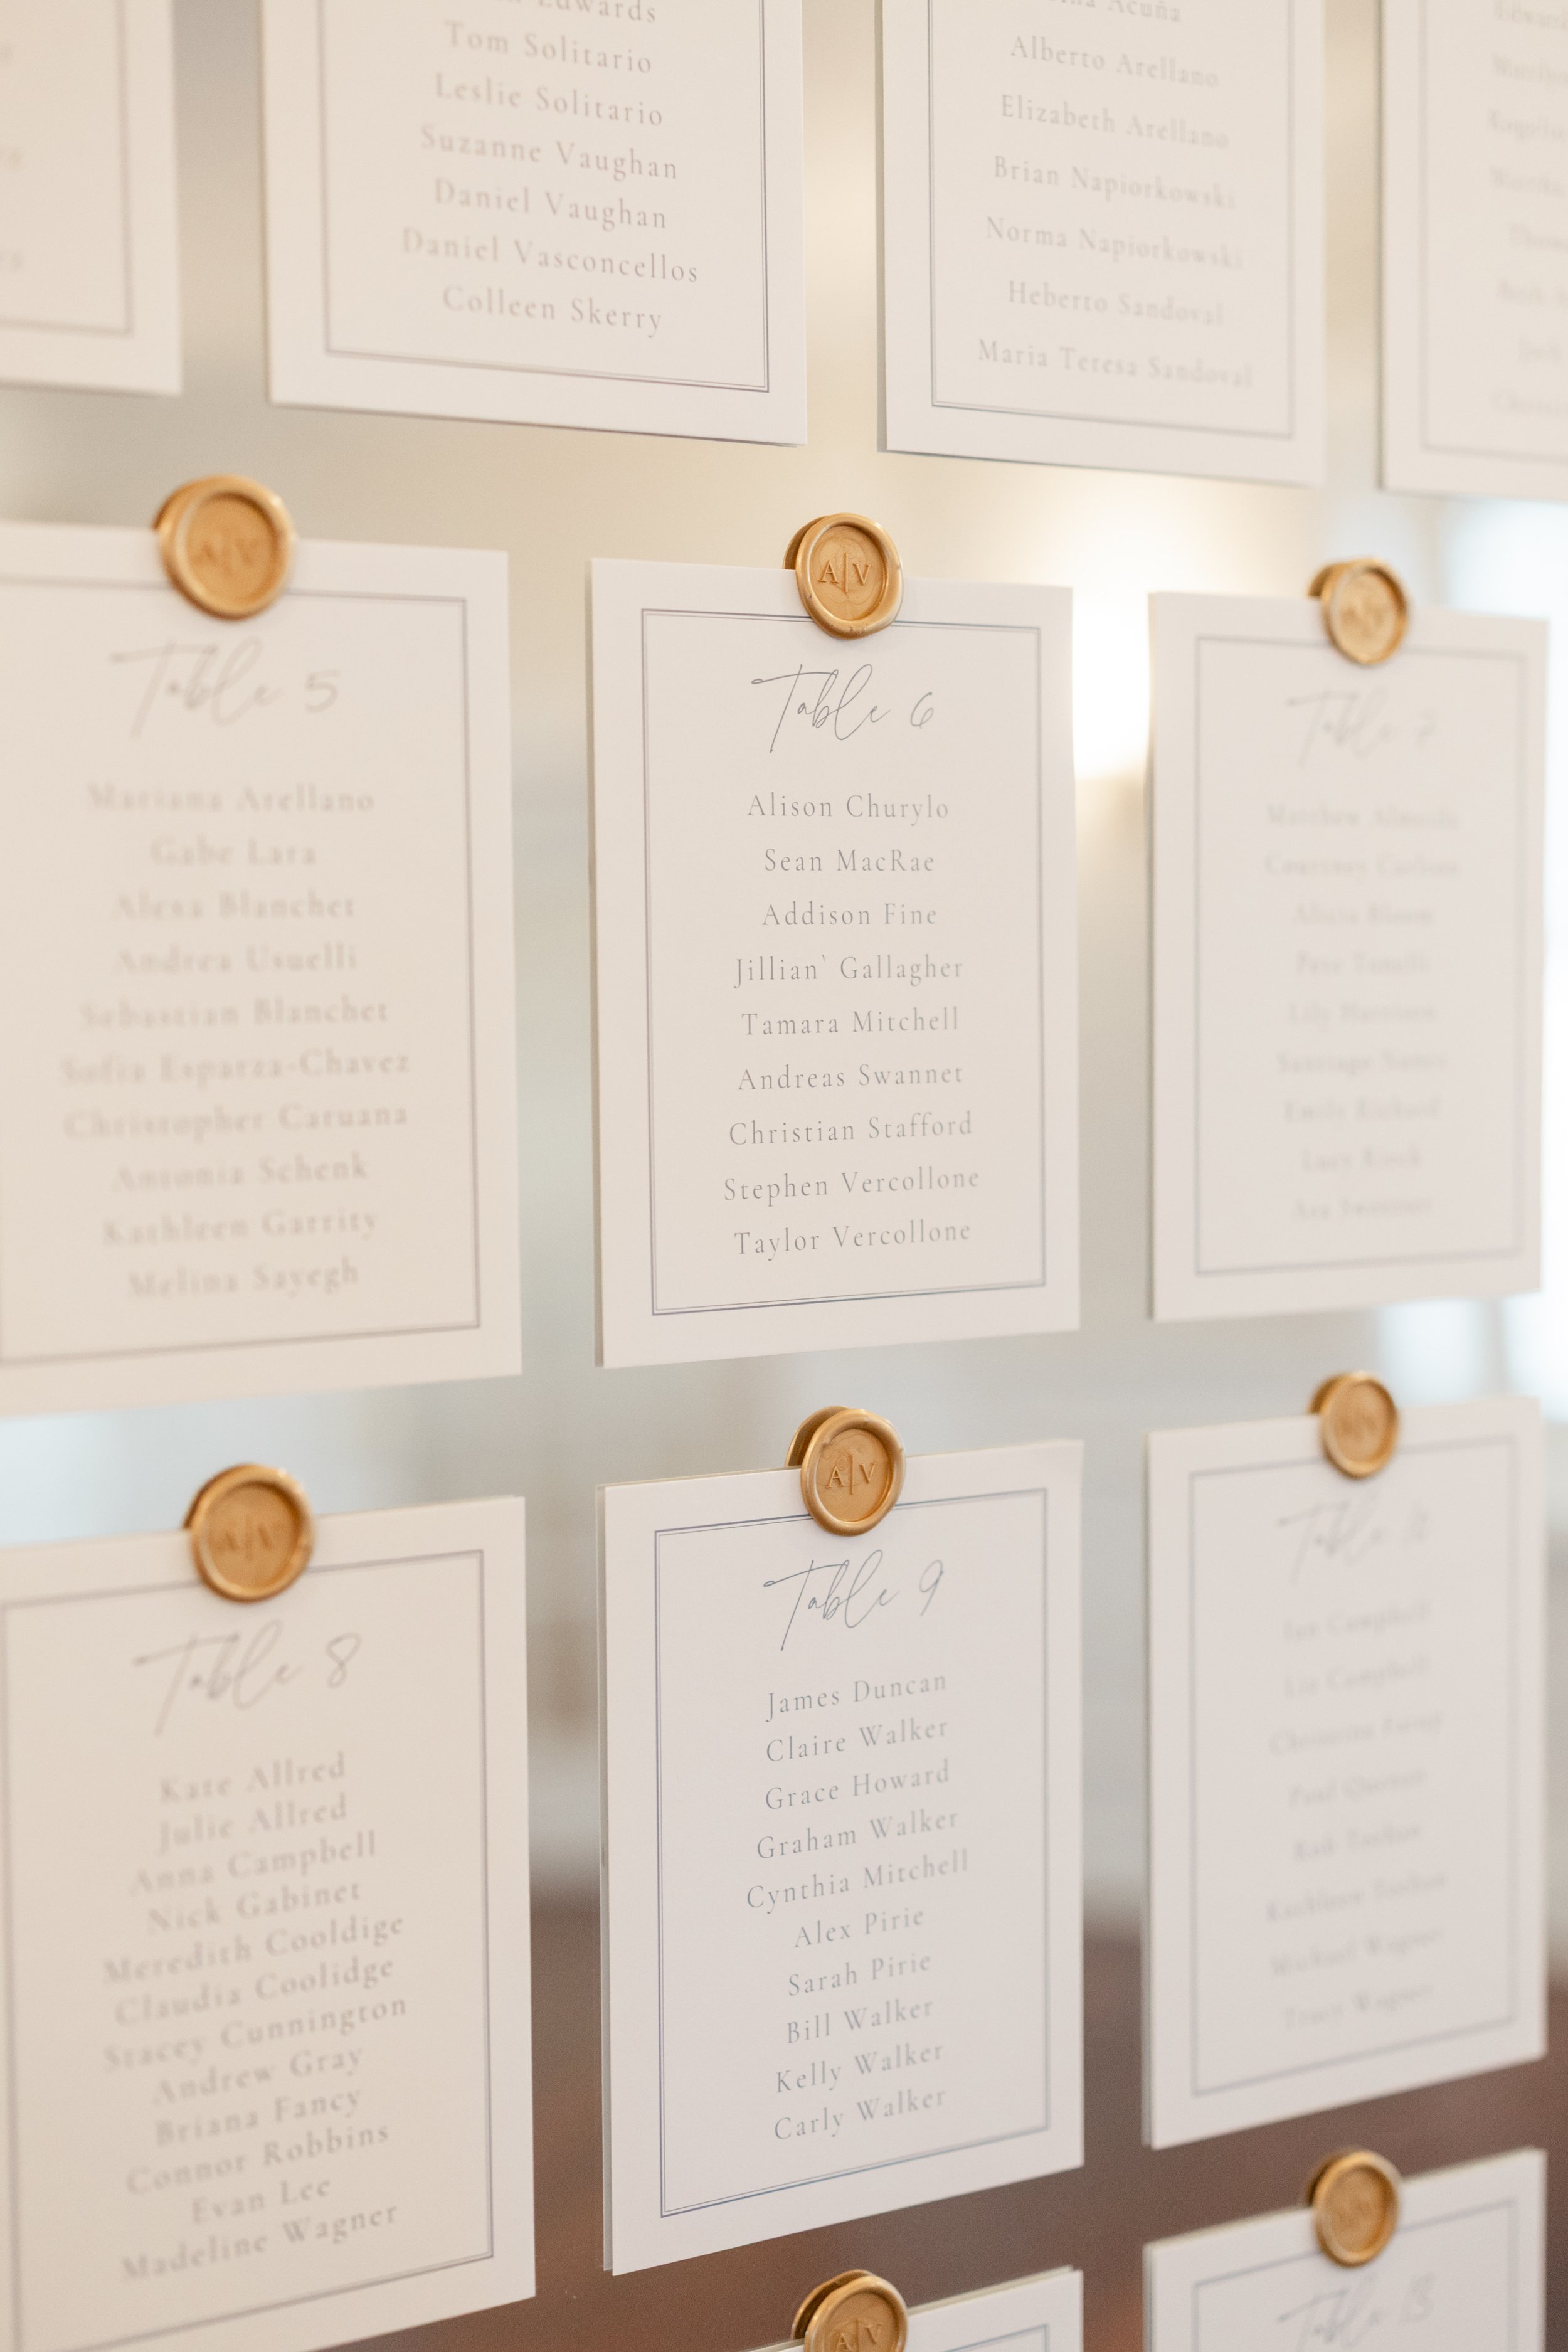 Edwards
Tom Solitario
Leslie Solitario
Suzanne Vaughan
Daniel Vaughan
Daniel Vasconcellos
Colleen Skerry
Acuña
Alberto Arellano
Elizabeth Arellano
Brian Napiorkowski
Norma Napiorkowski
Heberto Sandoval
Maria Teresa Sandoval
A|V
Table 5
Mariana Arellano
Gabe Lara
Alexa Blanchet
Andrea Usuelli
Sebastian Blanchet
Sofia Esparza-Chavez
Christopher Caruana
Antonia Schenk
Kathleen Garrity
Melina Sayegh
A|V
Table 6
Alison Churylo
Sean MacRae
Addison Fine
Jillian' Gallagher
Tamara Mitchell
Andreas Swannet
Christian Stafford
Stephen Vercollone
Taylor Vercollone
A|V
Table 7
Matthew Almeida
Courtney
Alicia Bloom
Pete
Lily
Santiago
Emily Richard
Lucy
Asa Swannet
A|V
Table 8
Kate Allred
Julie Allred
Anna Campbell
Nick Gabinet
Meredith Cooldige
Claudia Coolidge
Stacey Cunnington
Andrew Gray
Briana Fancy
Connor Robbins
Evan Lee
Madeline Wagner
A|V
Table 9
James Duncan
Claire Walker
Grace Howard
Graham Walker
Cynthia Mitchell
Alex Pirie
Sarah Pirie
Bill Walker
Kelly Walker
Carly Walker
A|V
Table
Ian Campbell
Liz Campbell
Christina
Paul
Kathleen
Michael Wagner
Tracy Wagner
A|V
Table 13